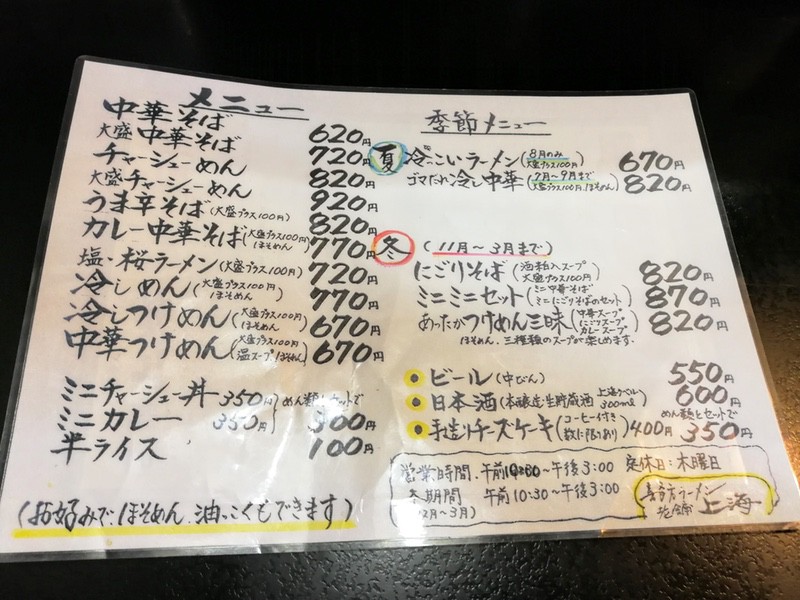 メニュー
中華そば 620円
大盛中華そば 720円
チャーシューめん 820円
大盛チャーシューめん 920円
うま辛そば(大盛プラス100円) 820円
カレー中華そば(大盛プラス100円 ほそめん) 770円
塩・桜ラーメン(大盛プラス100円) 720円
冷しめん(大盛プラス100円 ほそめん) 770円
冷しつけめん(大盛プラス100円 ほそめん) 670円
中華つけめん(大盛プラス100円 温スープ ほそめん) 670円
ミニチャーシュー丼 350円
ミニカレー 350円
めん類とセットで 300円
半ライス 100円
(お好みで、ほそめん、油っこくもできます)
季節メニュー
夏
冷こいラーメン(8月のみ 大盛プラス100円) 670円
ゴマだれ冷し中華(7月〜9月まで 大盛プラス100円、ほそめん) 820円
冬 (11月〜3月まで)
にごりそば(酒粕入スープ 大盛プラス100円) 820円
ミニミニセット(ミニ中華そば ミニにごりそばのセット) 870円
あったかつけめん三昧(中華スープ にごりスープ カレースープ) 820円
ほそめん、三種類のスープが楽しめます。
ビール(中びん) 550円
日本酒(本醸造生貯蔵酒 上海ラベル 300ml) 600円
手造りチーズケーキ(コーヒー付き 数に限りあり) 400円
めん類とセットで 350円
営業時間 午前10:00〜午後3:00 定休日:木曜日
冬期間 午前10:30〜午後3:00
(12月〜3月)
喜多方ラーメン
老舗 上海